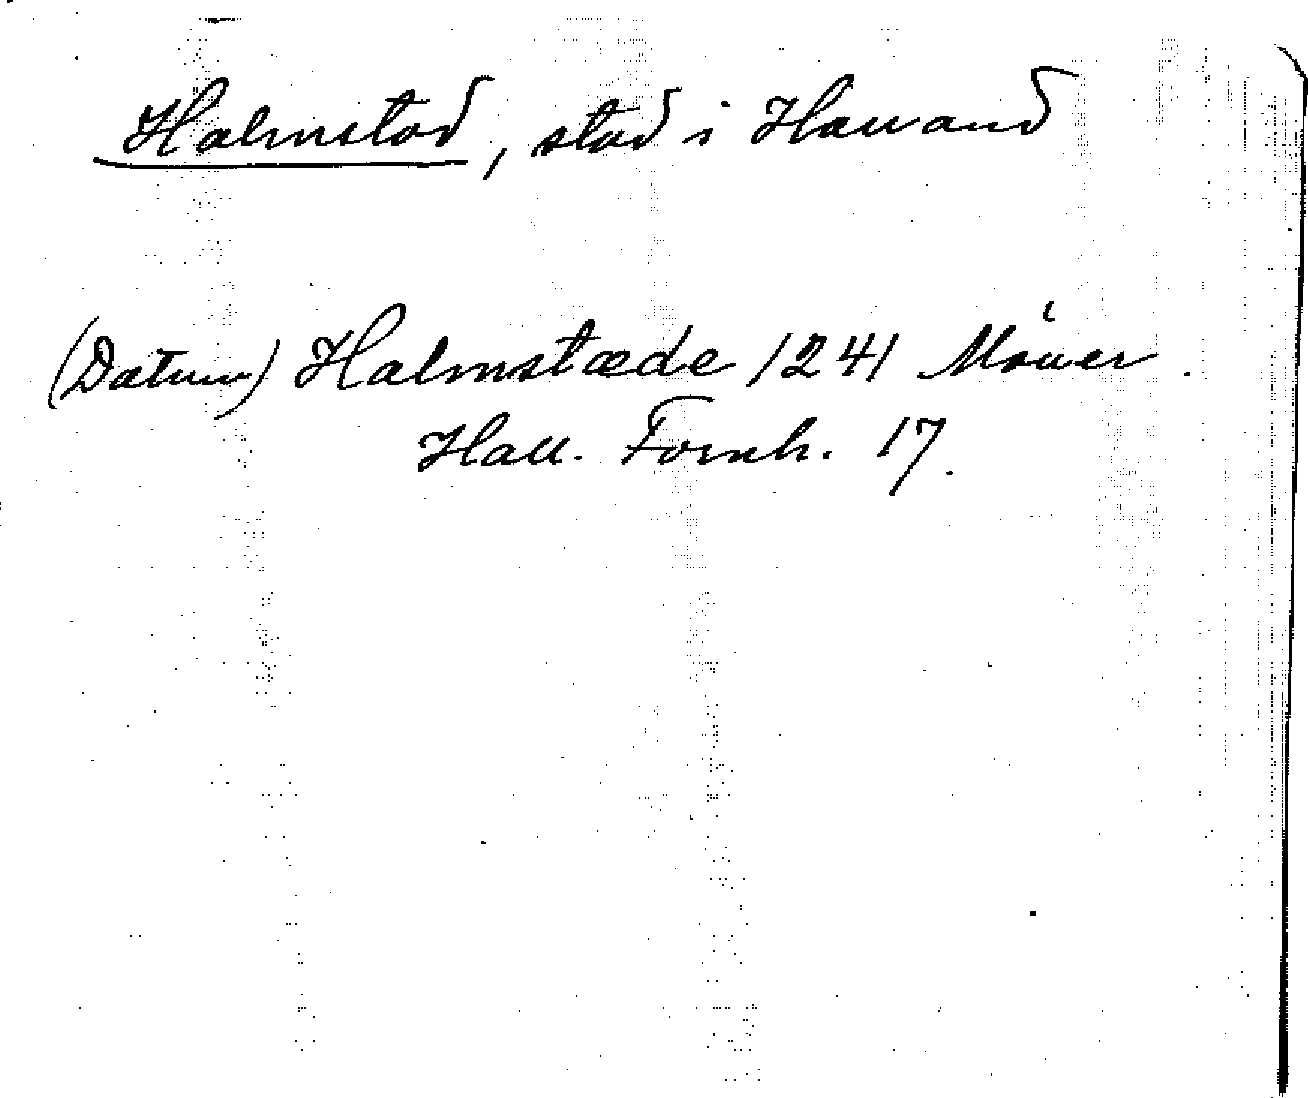 Halmstad, stad i Halland
(Datum) Halmstæde 1241 Möller.
Hall. Fornh. 17.